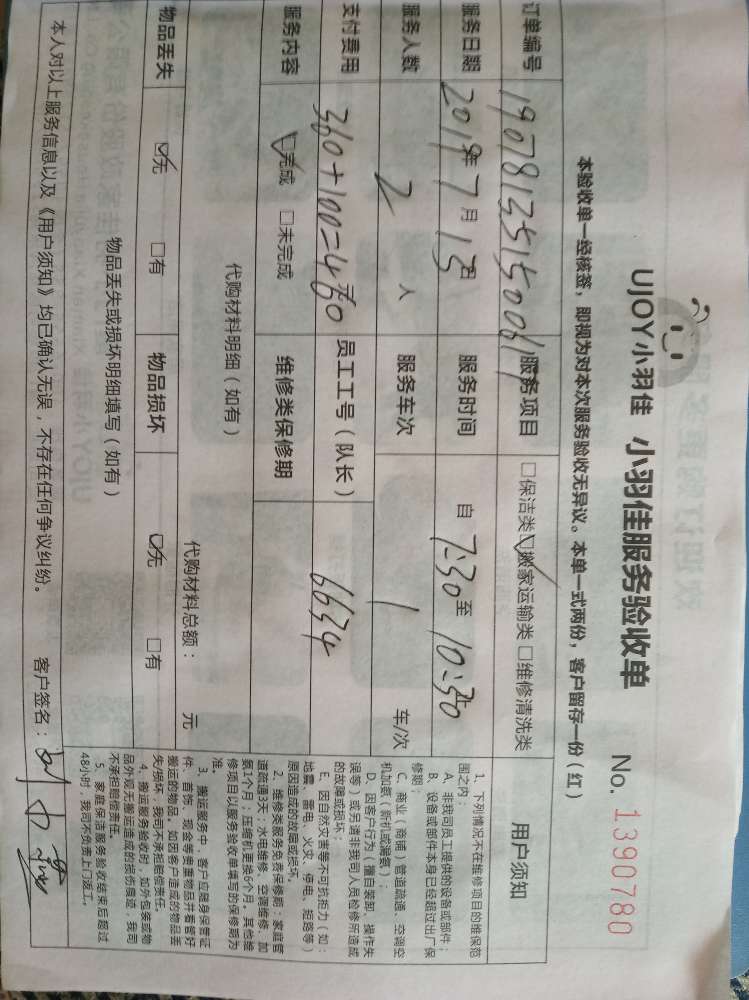 UJOY小羽佳 小羽佳服务验收单 No. 1390780
本验收单一经核签，即视为对本次服务验收无异议。本单一式两份，客户留存一份（红）
订单编号 服务项目 □保洁类 ☑搬家运输类 □维修清洗类
服务日期 2019年7月13日 服务时间 自 7:30 至 10:30
服务人数 2 人 服务车次 1 车/次
支付费用 360+100=460元 员工工号（队长） 6634
服务内容 ☑完成 □未完成 维修类保修期
代购材料明细（如有） 代购材料总额： 元
物品丢失 ☑无 □有 物品损坏 ☑无 □有
物品丢失或损坏明细填写（如有）
本人对以上服务信息以及《用户须知》均已确认无误，不存在任何争议纠纷。 客户签名：
用户须知
1. 下列情况不在维修项目的维保范
围之内：
A. 非我司员工提供的设备或部件；
B. 设备或部件本身已经超过出厂保
修期；
C. 商业（商铺）管道疏通、空调空
机加氨（新机或漏氨）；
D. 因客户行为（擅自装卸、操作失
误等）或另请非我司人员检修所造成
的故障或损坏；
E. 因自然灾害等不可抗拒力（如：
地震、雷电、火灾、停电、短路等）
原因造成的故障或损坏。
2. 维修类服务免费保修期：家庭管
道疏通3天；水电维修、空调维修、加
氨1个月；压缩机更换6个月。其他维
修项目以服务验收单填写的保修期为
准。
3. 搬运服务中，客户应随身保管证
件、首饰、现金等贵重物品并看管好
搬运的物品，如因客户造成的物品丢
失/损坏，我司不承担赔偿责任。
4. 搬运服务验收时，如外包装或物
品外观无搬运造成的损伤痕迹，我司
不承担赔偿责任。
5. 家庭保洁服务验收结束后超过
48小时，我司不负责上门返工。